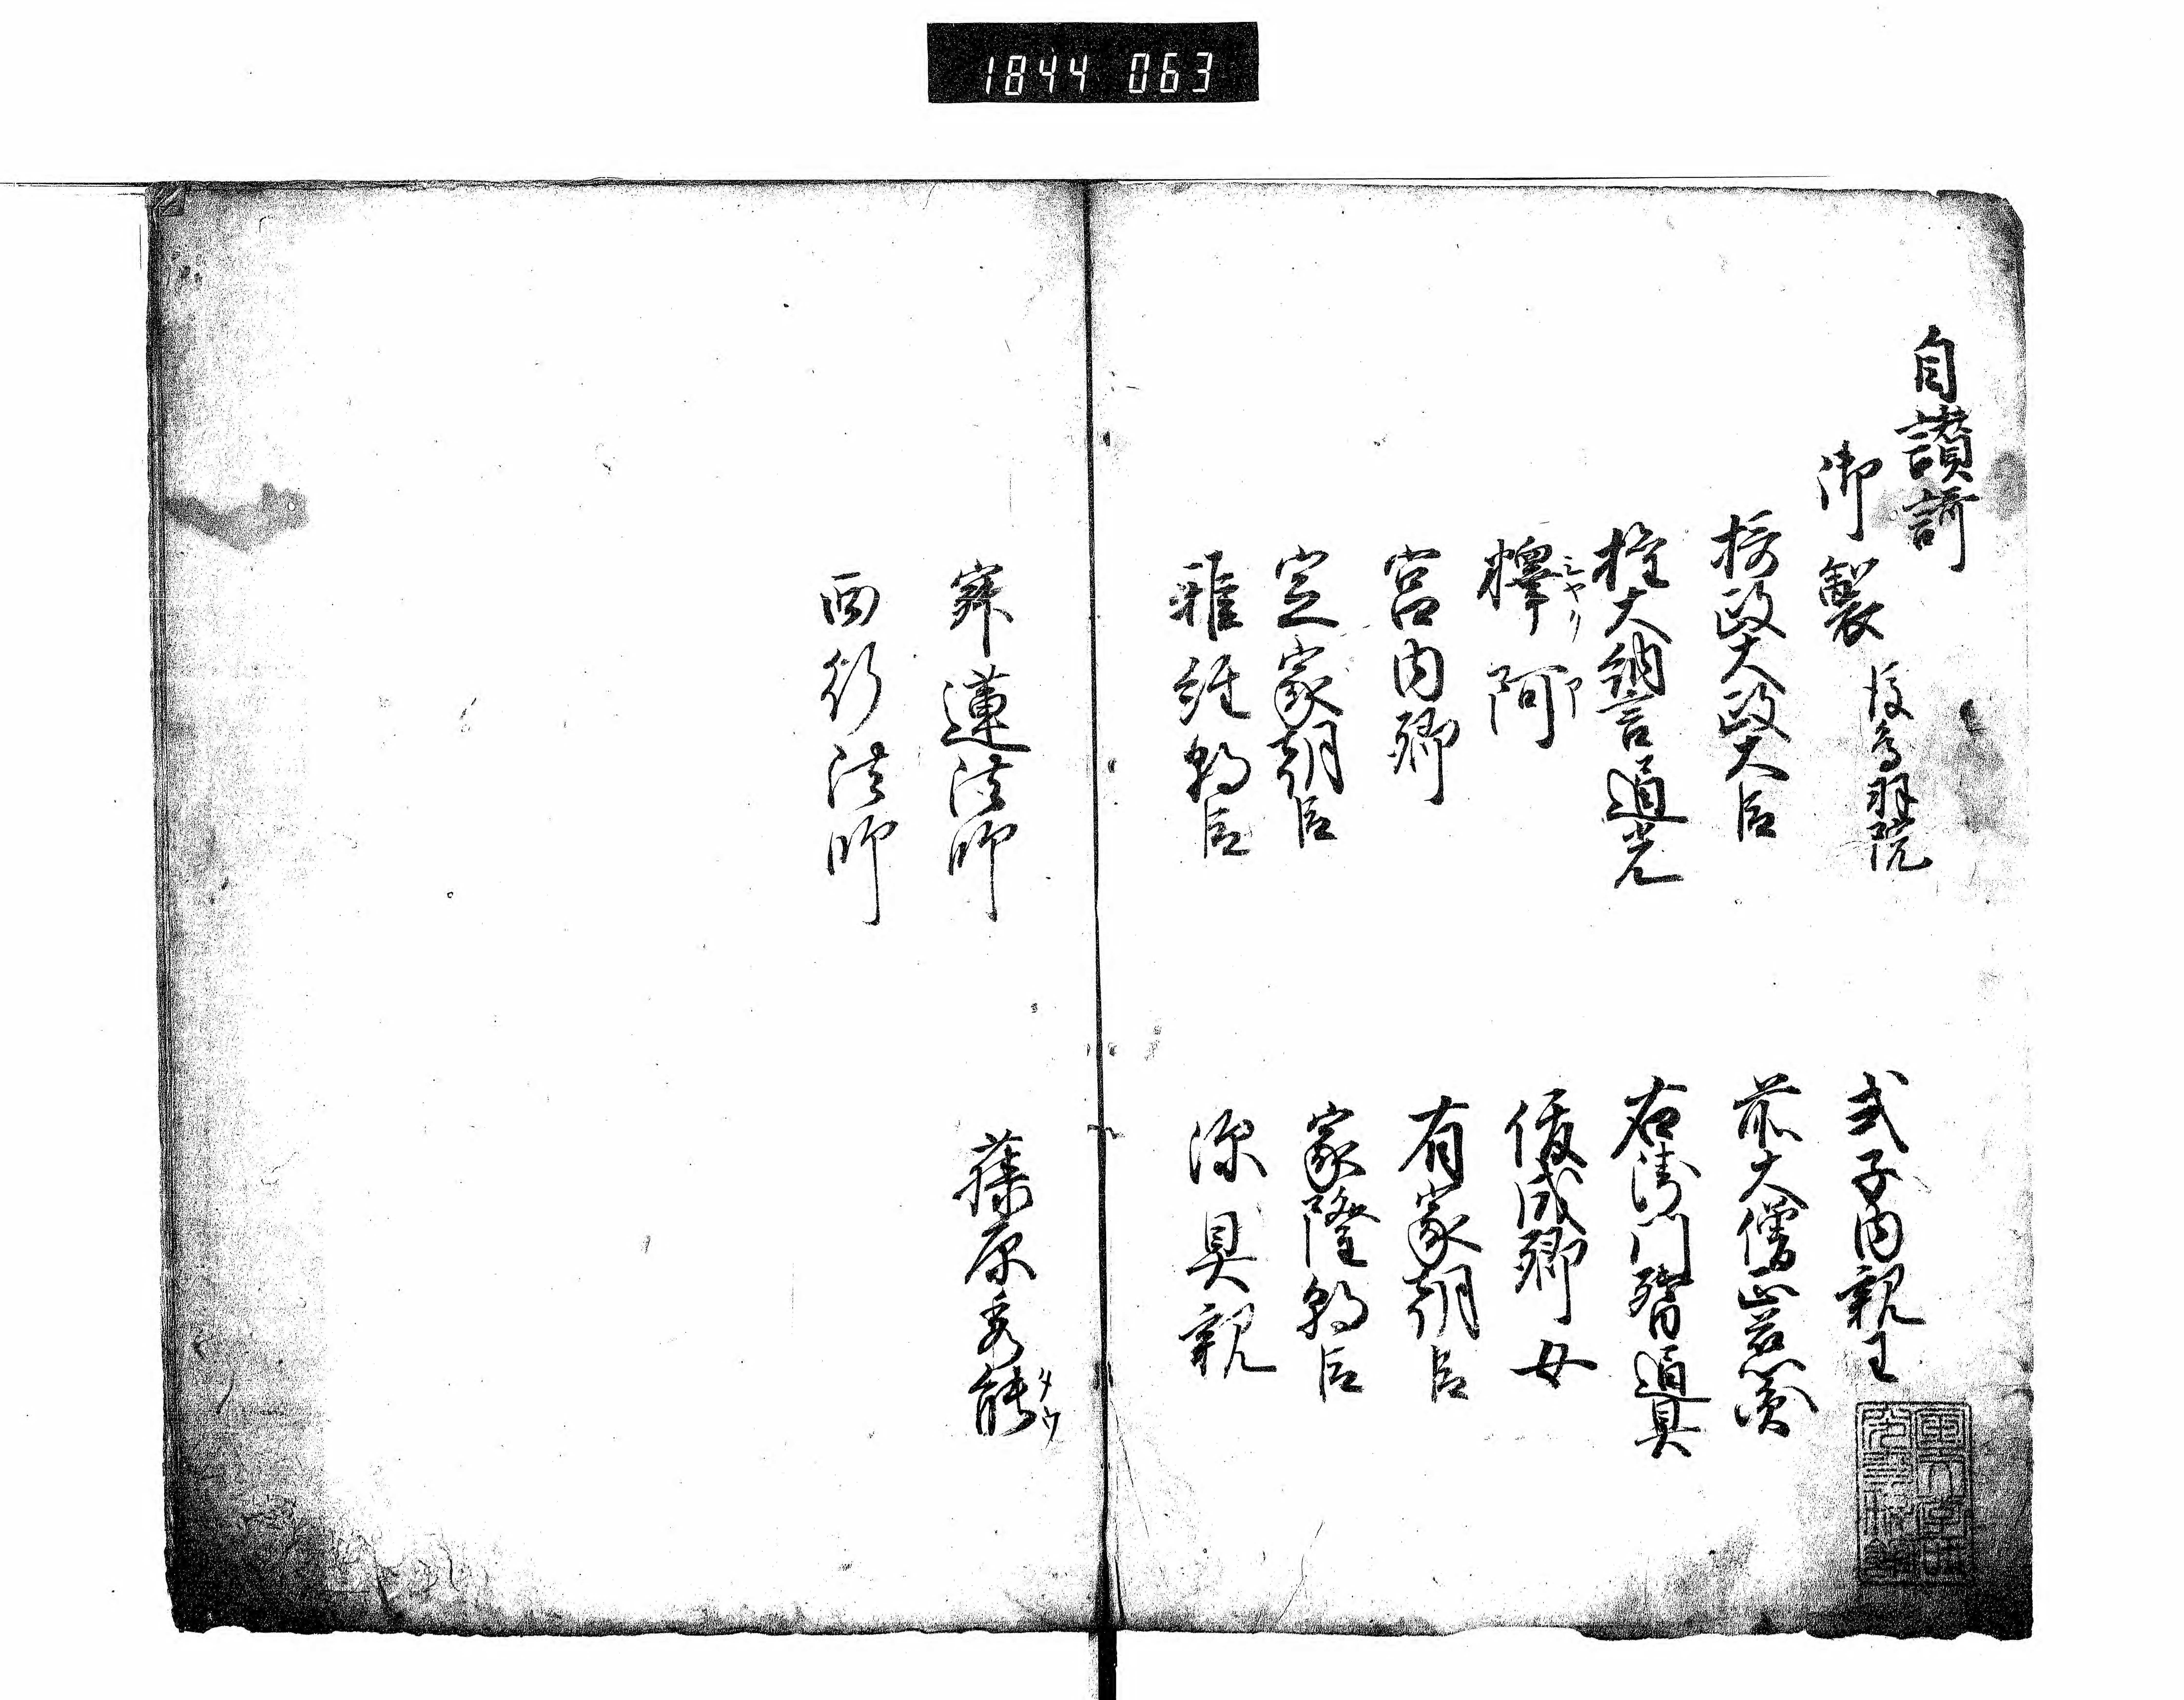 1844 063
自讃謌
御製 後鳥羽院
式子内親王
摂政大政大臣
前大僧正慈円
権大納言通光
右衛門督通具
釋阿
俊成卿女
宮内卿
有家朝臣
定家朝臣
家隆朝臣
雅経朝臣
源具親
寂蓮法師
藤原秀能
西行法師